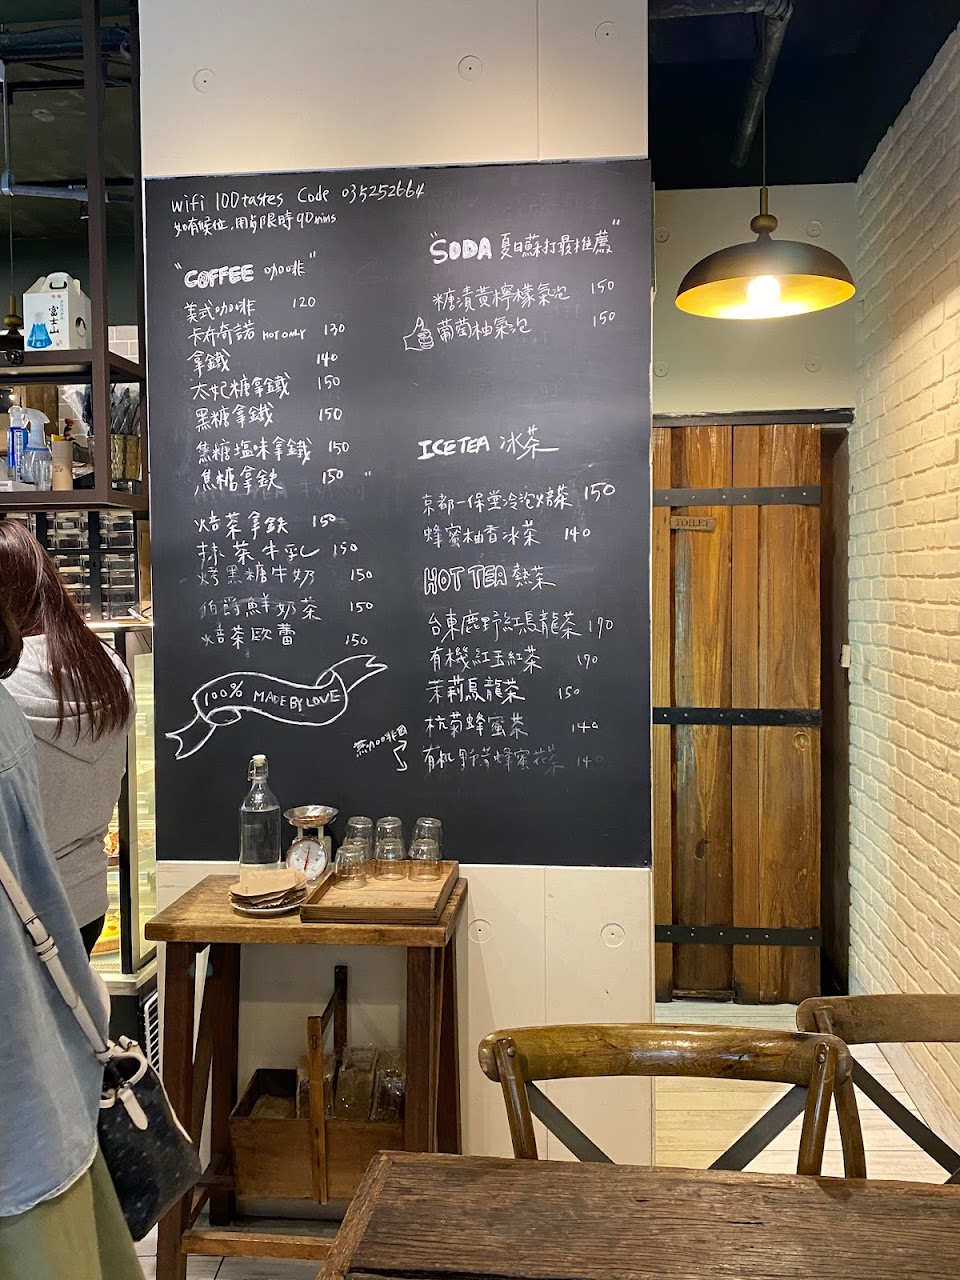 wifi 100tastes Code 035252664
如有候位,用餐限時90mins
"COFFEE 咖啡"
美式咖啡 120
卡布奇諾 HOT ONLY 130
拿鐵 140
太妃糖拿鐵 150
黑糖拿鐵 150
焦糖塩味拿鐵 150
焦糖拿鉄 150 "
焙茶拿鉄 150
抹茶牛乳 150
烤黑糖牛奶 150
伯爵鮮奶茶 150
焙茶歐蕾 150
100% MADE BY LOVE
"SODA 夏日蘇打最推薦"
糖漬黃檸檬氣泡 150
葡萄柚氣泡 150
ICE TEA 冰茶
京都一保堂冷泡焙茶 150
蜂蜜柚香冰茶 140
HOT TEA 熱茶
台東鹿野紅烏龍茶 170
有機紅玉紅茶 170
茉莉烏龍茶 150
杭菊蜂蜜茶 140
無咖啡因
有机野蜂蜜花茶 140
TOILET
富士山